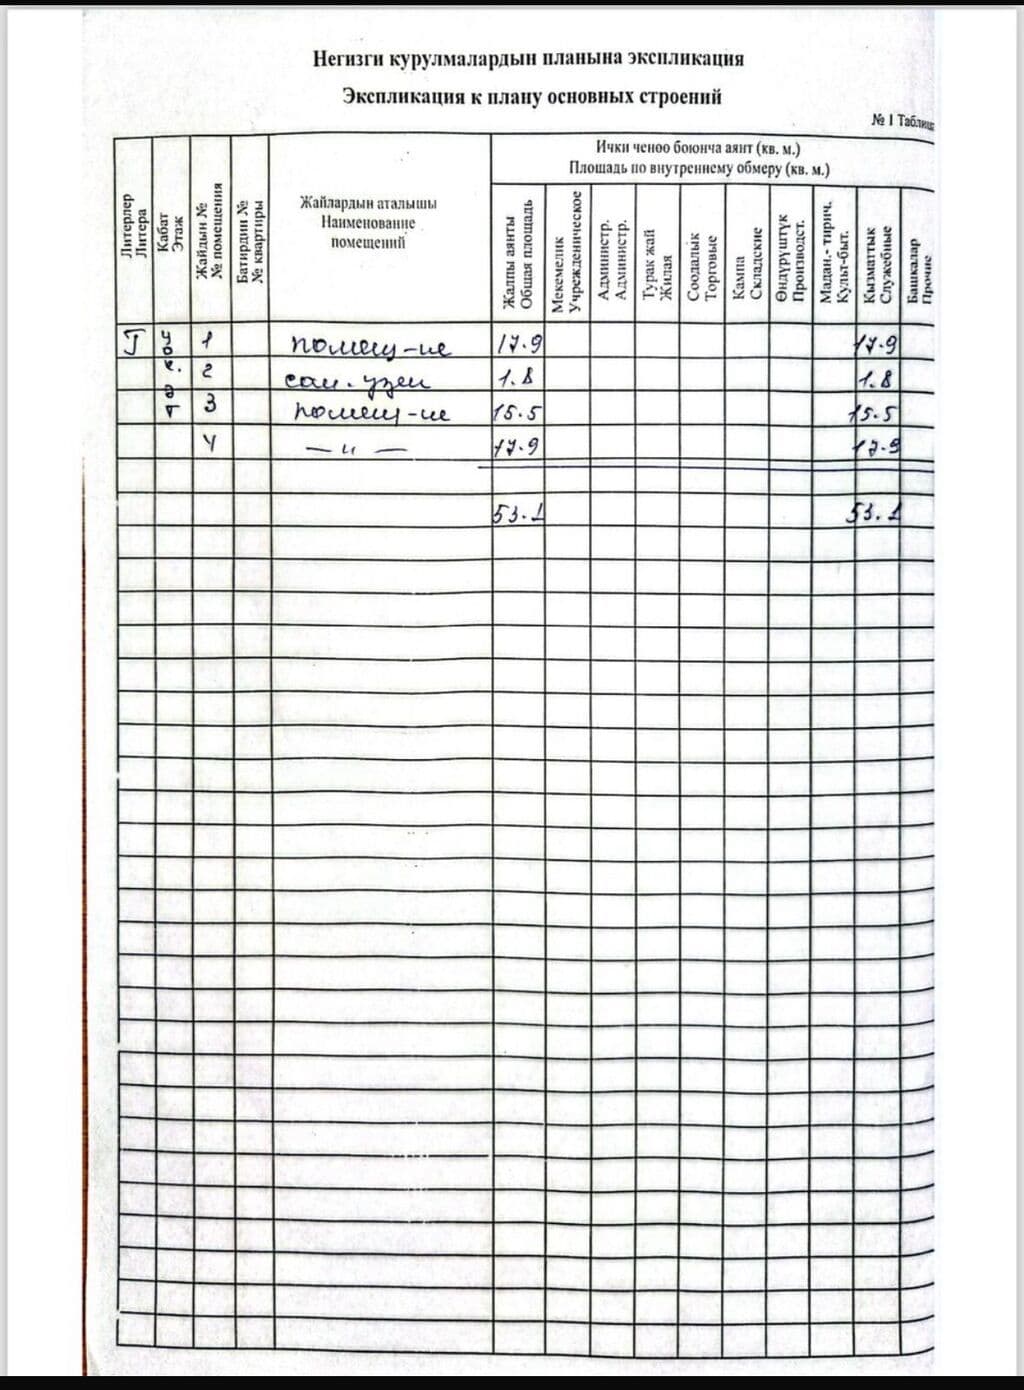 Негизги курулмалардын планына экспликация
Экспликация к плану основных строений
№ 1 Таблиц
Литерлер
Литера
Кабат
Этаж
Жайдын №
№ помещения
Батирдин №
№ квартиры
Жайлардын аталышы
Наименование
помещений
Ички ченөө боюнча аянт (кв. м.)
Площадь по внутреннему обмеру (кв. м.)
Жалпы аянты
Общая площадь
Мекемелик
Учрежденическое
Администр.
Администр.
Турак жай
Жилая
Соодалык
Торговые
Кампа
Складские
Өндүрүштүк
Производст.
Мадан.- тирич.
Культ-быт.
Кызматтык
Служебные
Башкалар
Прочие
Г 1 помещ-ие 17.9 17.9
2 сан. узел 1.8 1.8
3 помещ-ие 15.5 15.5
4 — " — 17.9 17.9
53.1 53.1